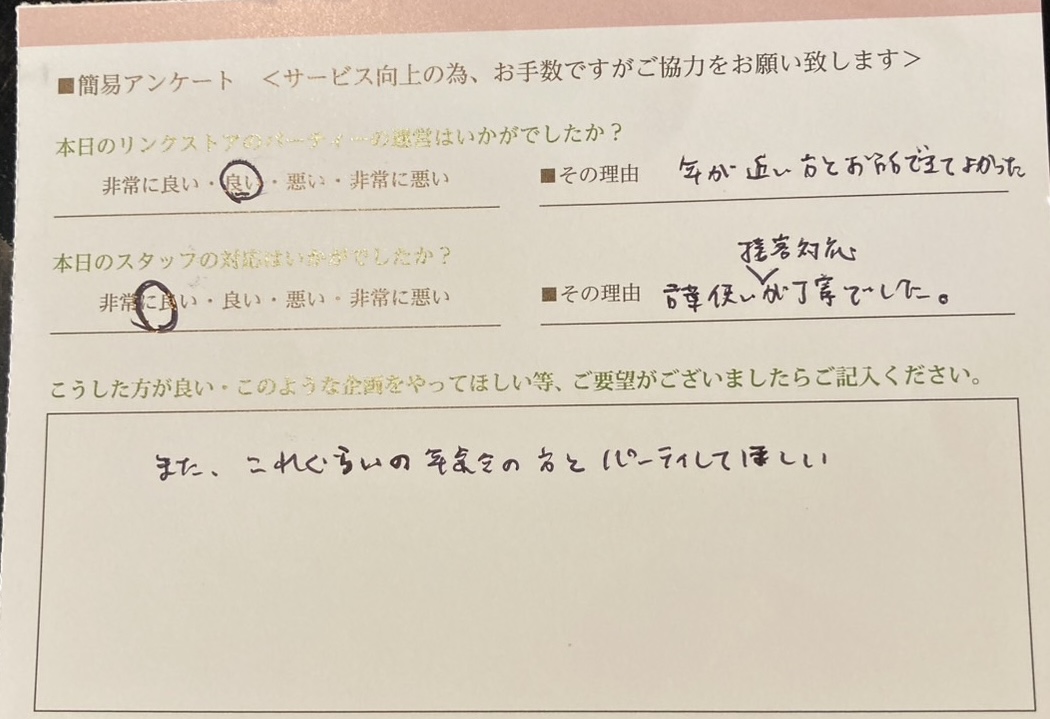 ■簡易アンケート ＜サービス向上の為、お手数ですがご協力をお願い致します＞
本日のリンクストアのパーティーの運営はいかがでしたか？
非常に良い・良い・悪い・非常に悪い ■その理由 年が近い方とお話できてよかった
本日のスタッフの対応はいかがでしたか？
接客対応
非常に良い・良い・悪い・非常に悪い ■その理由 言葉使いが丁寧でした。
こうした方が良い・このような企画をやってほしい等、ご要望がございましたらご記入ください。
また、これぐらいの年令の方とパーティしてほしい